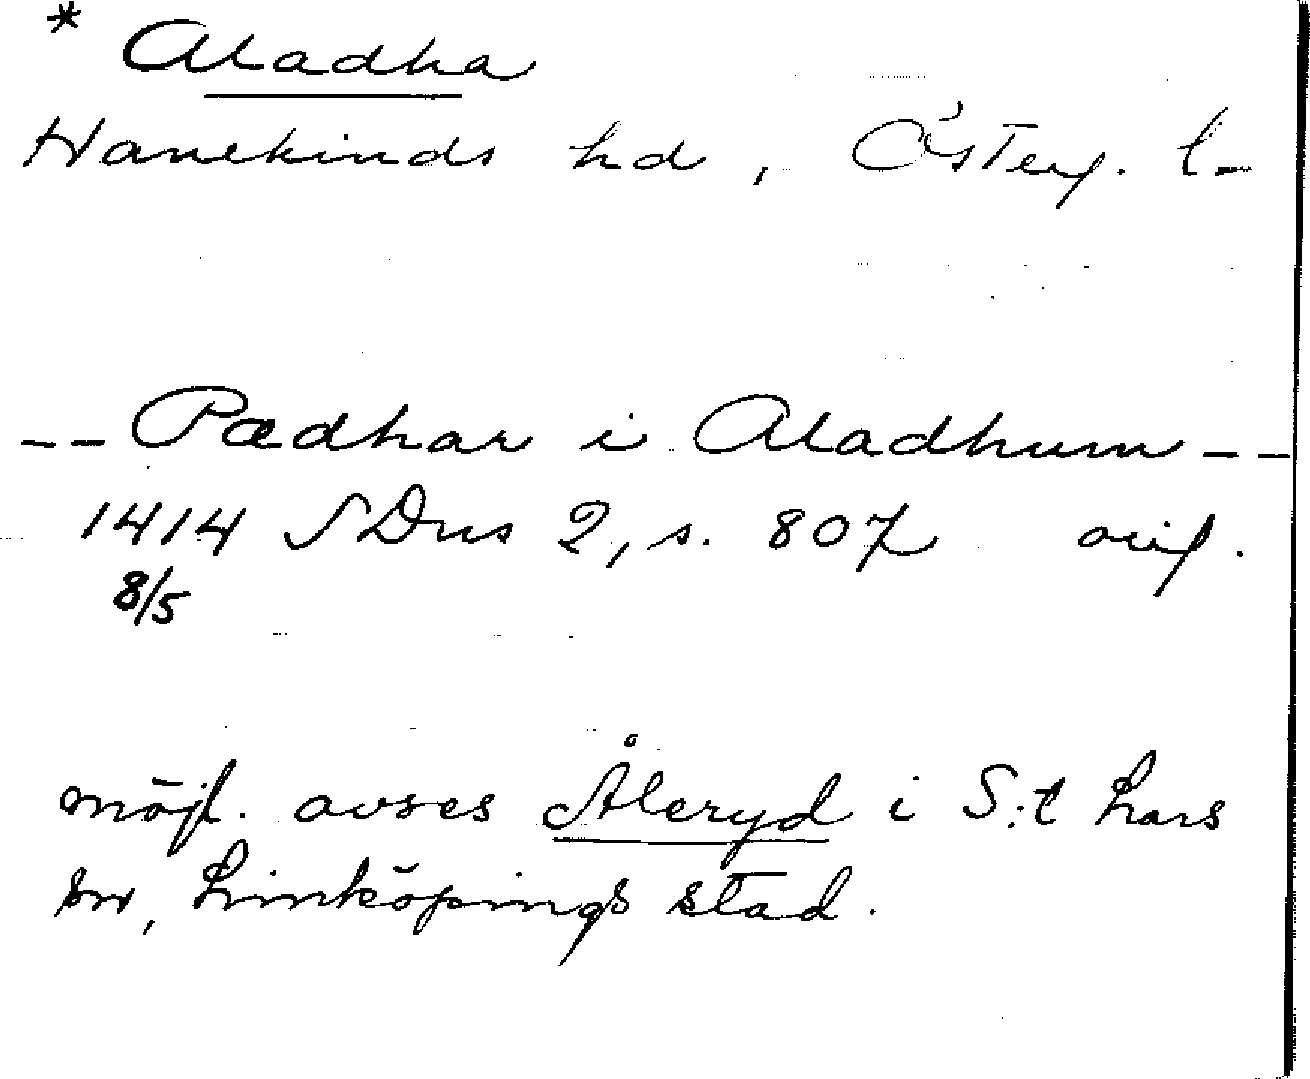 * Aladha
Hanekinds hd, Österg. l-
-- Pædhar i Aladhum --
1414 SDns 2, s. 807 orig.
8/5
möjl. avses Åleryd i S:t Lars
sn, Linköpings stad.